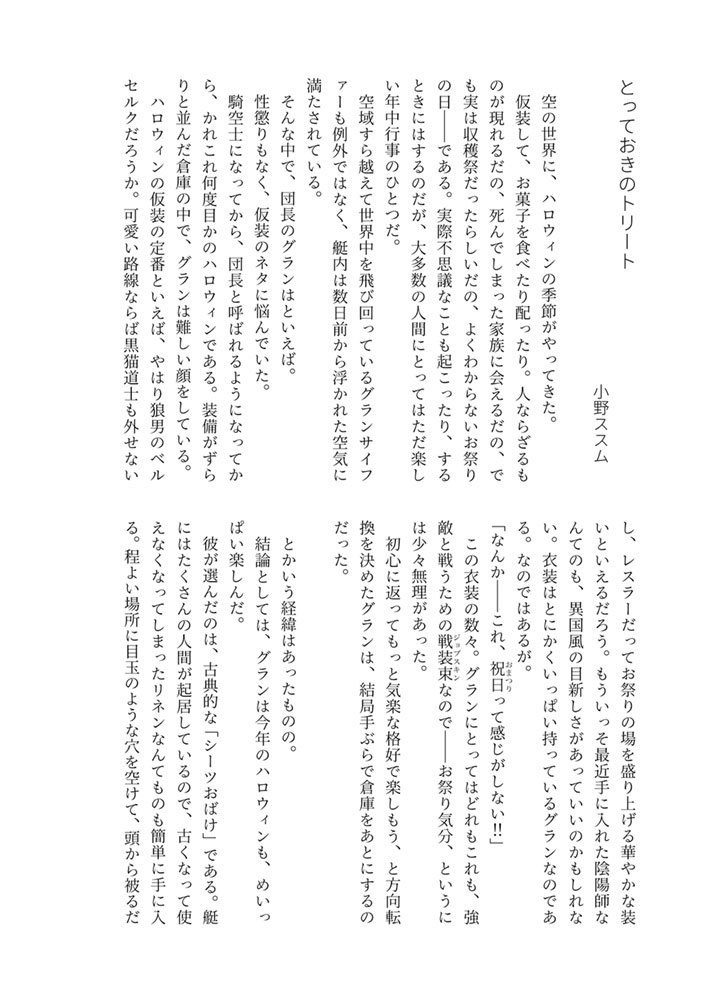 とっておきのトリート
小野ススム
空の世界に、ハロウィンの季節がやってきた。
仮装して、お菓子を食べたり配ったり。人ならざるも
のが現れるだの、死んでしまった家族に会えるだの、で
も実は収穫祭だったらしいだの、よくわからないお祭り
の日――である。実際不思議なことも起こったり、する
ときにはするのだが、大多数の人間にとってはただ楽し
い年中行事のひとつだ。
空域すら越えて世界中を飛び回っているグランサイフ
ァーも例外ではなく、艇内は数日前から浮かれた空気に
満たされている。
そんな中で、団長のグランはといえば。
性懲りもなく、仮装のネタに悩んでいた。
騎空士になってから、団長と呼ばれるようになってか
ら、かれこれ何度目かのハロウィンである。装備がずら
りと並んだ倉庫の中で、グランは難しい顔をしている。
ハロウィンの仮装の定番といえば、やはり狼男のベル
セルクだろうか。可愛い路線ならば黒猫道士も外せない
し、レスラーだってお祭りの場を盛り上げる華やかな装
いといえるだろう。もういっそ最近手に入れた陰陽師な
んてのも、異国風の目新しさがあっていいのかもしれな
い。衣装はとにかくいっぱい持っているグランなのであ
る。なのではあるが。
「なんか――これ、祝日って感じがしない!!」
おまつり
この衣装の数々。グランにとってはどれもこれも、強
敵と戦うための戦装束なので――お祭り気分、というに
ジョブスキン
は少々無理があった。
初心に返ってもっと気楽な格好で楽しもう、と方向転
換を決めたグランは、結局手ぶらで倉庫をあとにするの
だった。
とかいう経緯はあったものの。
結論としては、グランは今年のハロウィンも、めいっ
ぱい楽しんだ。
彼が選んだのは、古典的な「シーツおばけ」である。艇
にはたくさんの人間が起居しているので、古くなって使
えなくなってしまったリネンなんてものも簡単に手に入
る。程よい場所に目玉のような穴を空けて、頭から被るだ